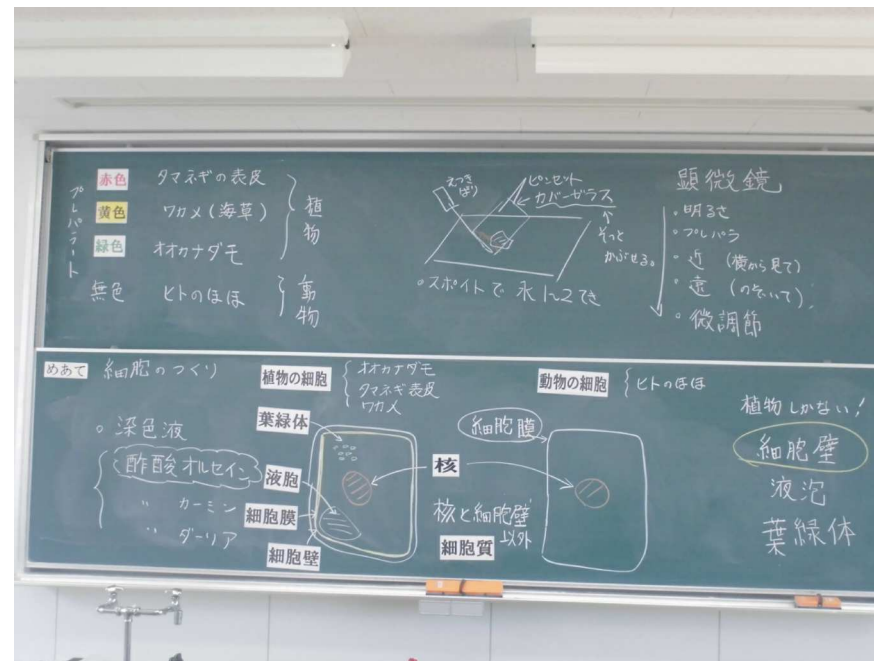 プレパラート
赤色 タマネギの表皮
黄色 ワカメ(海草)
緑色 オオカナダモ
植物
無色 ヒトのほほ
動物
えつき
ばり
ピンセット
カバーガラス
そっと
かぶせる。
・スポイトで水1~2てき
顕微鏡
・明るさ
・プレパラ
・近(横から見て)
・遠(のぞいて)
・微調節
めあて 細胞のつくり
植物の細胞
オオカナダモ
タマネギ表皮
ワカメ
動物の細胞
ヒトのほほ
・染色液
酢酸オルセイン
〃 カーミン
〃 ダーリア
葉緑体
液胞
細胞膜
細胞壁
細胞膜
核
核と細胞壁
以外
細胞質
植物しかない!
細胞壁
液泡
葉緑体